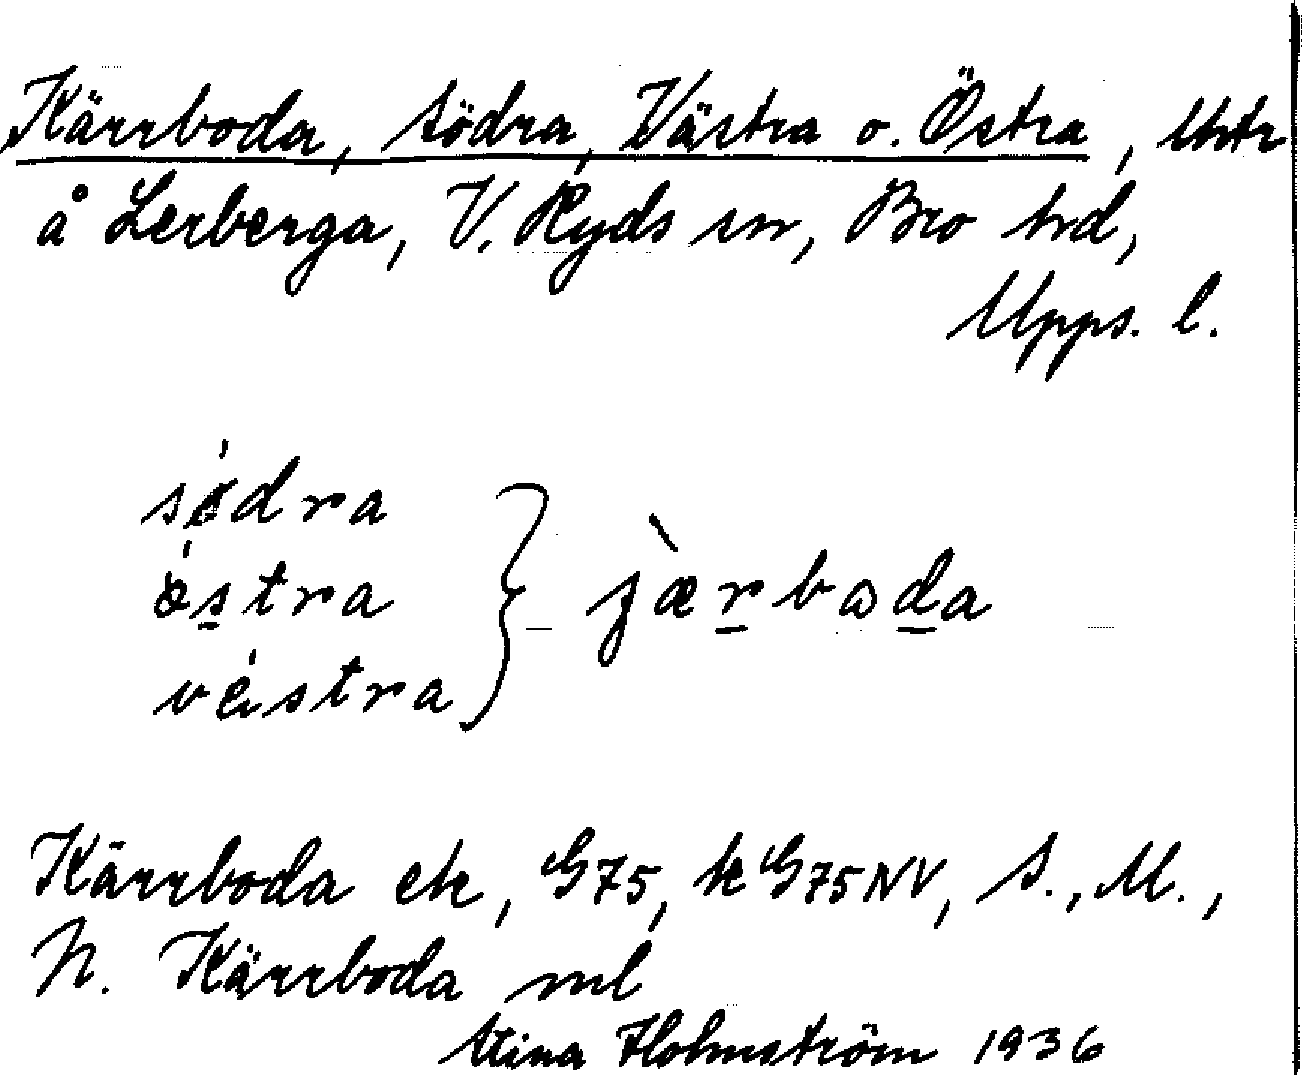 Kärrboda, södra, Västra o. Östra, Utr
å Lerberga, V. Ryds sn, Bro hd,
Upps. l.
södra
östra
véstra
} jærboda
Kärrboda ek, G75, k G75NV, S., M.,
N. Kärrboda ml
Stina Holmström 1936